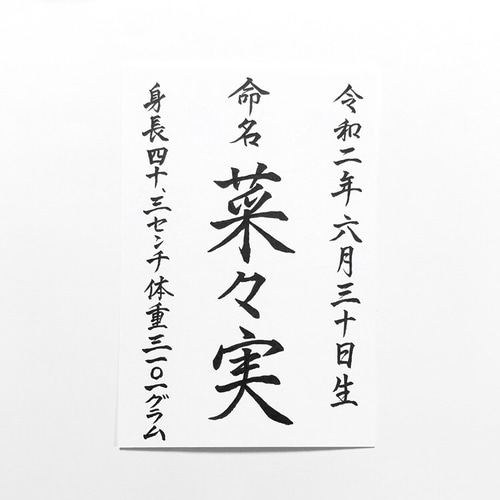 令和二年六月三十日生
命名
菜々実
身長四十、三センチ体重三一〇一グラム